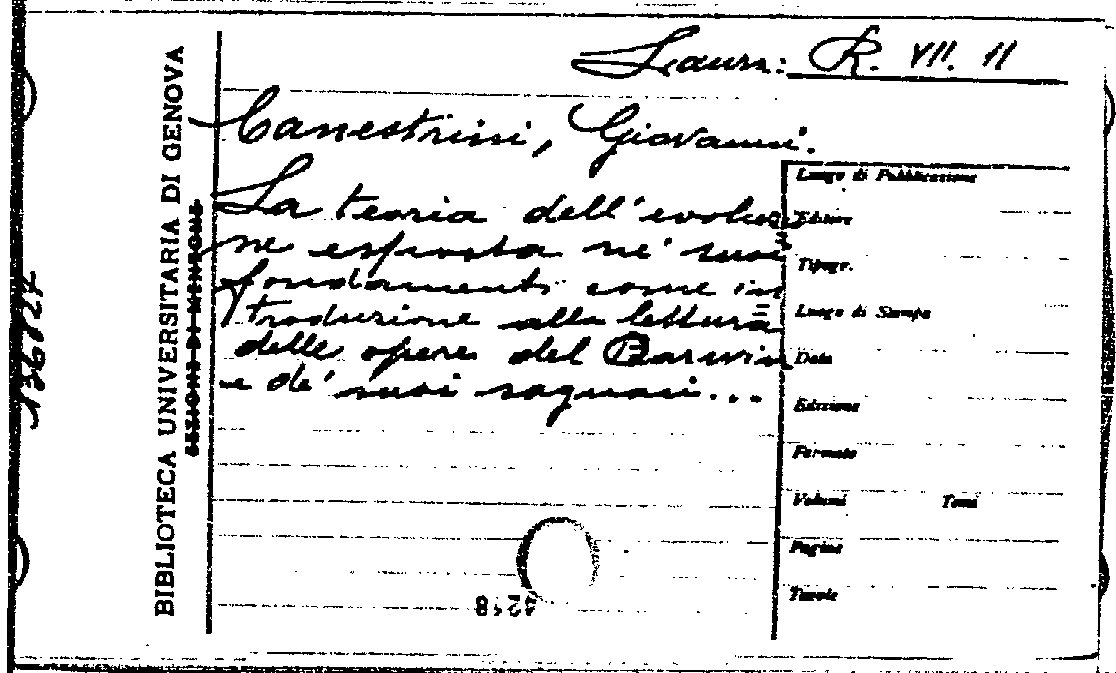 Laura: R. VII. 11
Canestrini, Giovanni.
La teoria dell'evoluzio=
ne esposta ne' suoi
fondamenti come in=
troduzione alla lettura
delle opere del Darwin
e de' suoi seguaci...
Luogo di Pubblicazione
Editore
Tipogr.
Luogo di Stampa
Data
Edizione
Formato
Volumi Tomi
Pagine
Tavole
BIBLIOTECA UNIVERSITARIA DI GENOVA
136727